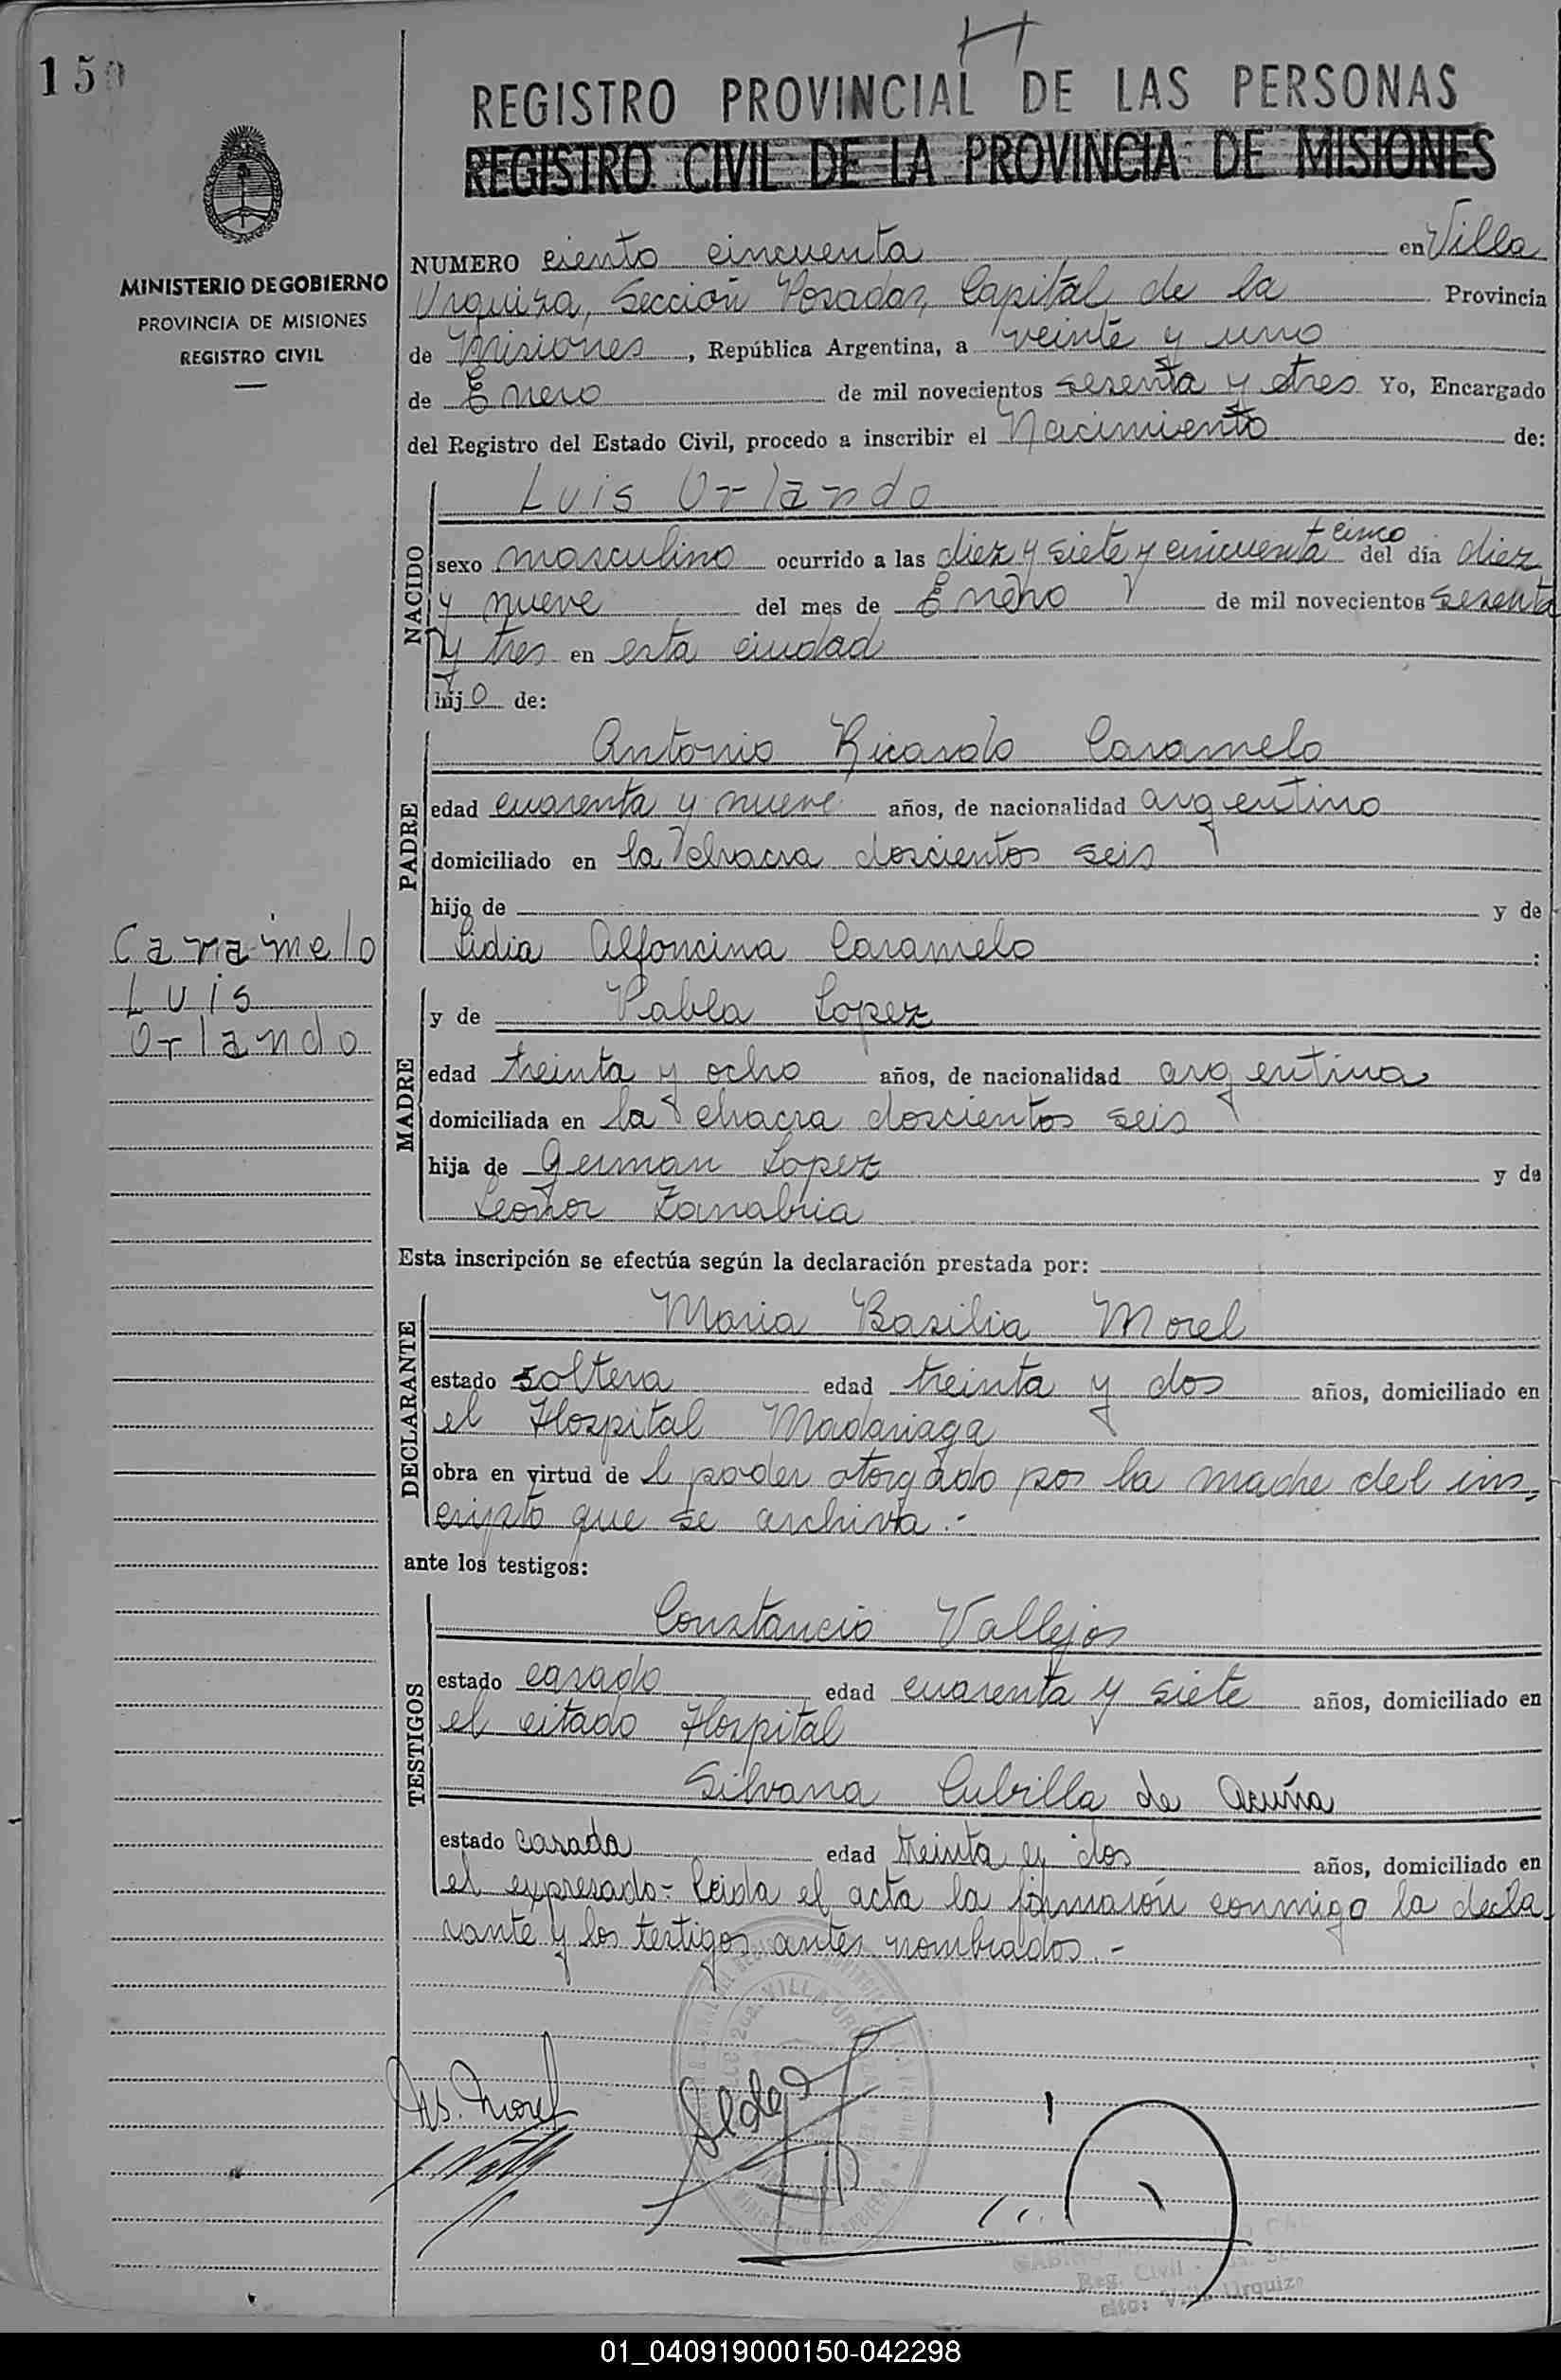 150
REGISTRO PROVINCIAL DE LAS PERSONAS
REGISTRO CIVIL DE LA PROVINCIA DE MISIONES
MINISTERIO DE GOBIERNO
PROVINCIA DE MISIONES
REGISTRO CIVIL
NUMERO ciento cincuenta en Villa
Urquiza, Sección Posadas, Capital de la Provincia
de Misiones, República Argentina, a veinte y uno
de Enero de mil novecientos sesenta y tres Yo, Encargado
del Registro del Estado Civil, procedo a inscribir el Nacimiento de:
NACIDO
Luis Orlando
sexo masculino ocurrido a las diez y siete y cincuenta + cinco del día diez
y nueve del mes de Enero de mil novecientos sesenta
y tres en esta ciudad
hijo de:
PADRE
Antonio Ricardo Caramelo
edad cuarenta y nueve años, de nacionalidad argentino
domiciliado en la chacra doscientos seis
hijo de y de
Lidia Alfoncina Caramelo :
Caramelo
Luis
Orlando
MADRE
y de Pabla Lopez
edad treinta y ocho años, de nacionalidad argentina
domiciliada en la chacra doscientos seis
hija de German Lopez y de
Leonor Zanabria
Esta inscripción se efectúa según la declaración prestada por:
DECLARANTE
Maria Basilia Morel
estado soltera edad treinta y dos años, domiciliado en
el Hospital Madariaga
obra en virtud de l poder otorgado por la madre del ins-
cripto que se archiva.-
ante los testigos:
TESTIGOS
Constancio Vallejos
estado casado edad cuarenta y siete años, domiciliado en
el citado Hospital
Silvana Cubilla de Acuña
estado casada edad treinta y dos años, domiciliado en
el expresado.- Leida el acta la firmaron conmigo la decla
rante y los testigos antes nombrados.-
VILLA URQUIZA
Morel
Reg. Civil
Villa Urquiza
01_040919000150-042298